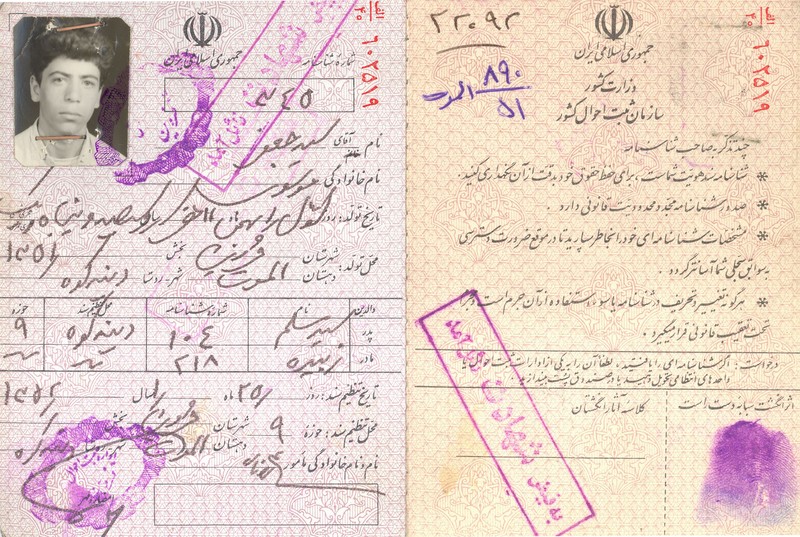 الف
۴۰
۶۰۲۵۱۹
جمهوری اسلامی ایران
شماره شناسنامه
۳۴۵
نام آقای خانم سید جعفر
نام خانوادگی موسوی
تاریخ تولد: روز اول بهمن ماه
۱۳۵۱
محل تولد: شهرستان قزوین بخش
الموت دهستان شهر، روستا دینه کوه
والدین نام شماره شناسنامه محل تنظیم سند حوزه
پدر سید سلم ۱۰۴ دینه کوه ۹
مادر زبیده ۲۱۸
تاریخ تنظیم سند: روز ۲۵ ماه سال ۱۳۵۲
محل تنظیم سند: حوزه ۹ شهرستان قزوین بخش
الموت دهستان دینه کوه
نام و نام خانوادگی مأمور
به فیض شهادت نائل آمد
۲۲۰۹۲
۸۹۰
۵۱
الموت
الف
۴۰
۶۰۲۵۱۹
جمهوری اسلامی ایران
وزارت کشور
سازمان ثبت احوال کشور
چند تذکر به صاحب شناسنامه
* شناسنامه سند هویت شماست، برای حفظ حقوق خود بدقت از آن نگهداری کنید.
* صدور شناسنامه مجدد محدودیت قانونی دارد.
* مشخصات شناسنامه ای خود را بخاطر بسپارید تا در موقع ضرورت دسترسی
به سوابق سجلی شما آسانتر گردد.
* هرگونه تغییر و تحریف در شناسنامه یا سوء استفاده از آن جرم است و
تحت تعقیب قانونی قرار میگیرد.
درخواست: اگر شناسنامه ای را یافتید، لطفاً آن را به یکی از ادارات ثبت احوال یا
واحدهای انتظامی تحویل دهید یا در صندوق پست بیندازید.
اثر انگشت سبابه دست است
کلاسه آثار انگشتان
به فیض شهادت نائل آمد